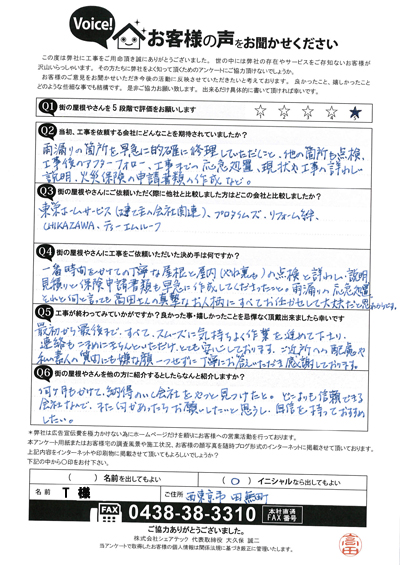 Voice!
お客様の声をお聞かせください
この度は弊社に工事をご用命頂き誠にありがとうございました。世の中には弊社の存在やサービスをご存知ないお客様が
沢山いらっしゃいます。その方たちに弊社をよく知って頂くためのアンケートにご協力頂けないでしょうか。
お客様のご意見をお聞かせいただき今後の活動に反映させていただきたいと考えております。良かったこと、嬉しかったこと
どのような些細な事でも結構です。是非ご協力お願い致します。出来るだけ具体的に書いて頂ければ幸いです。
Q1 街の屋根やさんを5段階で評価をお願いします
☆ ☆ ☆ ☆ ★
Q2 当初、工事を依頼する会社にどんなことを期待されていましたか?
雨漏りの箇所を早急に的確に修理していただくこと、他の箇所も点検、
工事後のアフターフォロー、工事までの応急処置、現状や工事の詳わしい
説明、火災保険の申請書類の作成など。
Q3 街の屋根やさんにご依頼いただいた際に他社と比較しました方はどこの会社と比較しましたか?
東栄ホームサービス(建て主の会社関連)、プロタイムズ、リフォーム
CHIKAZAWA、ディームルーフ
Q4 街の屋根やさんに工事をご依頼いただいた決め手は何ですか?
一番時間をかけての丁寧な屋根と屋内(天井裏も)の点検と詳わしい説明
見積りと保険申請書類も早急に作成してくださったこと。雨漏りの応急処置
それと何と言っても高田さんの真摯なお人柄にすべてお任せして大丈夫だと思われたから。
Q5 工事が終わってみていかがですか?良かった事・嬉しかったことを忌憚なく頂戴出来ましたら幸いです
最初から最後まで、すべて、スムーズに気持ちよく作業を進めて下さり、
連絡もこまめにきちんといただけ、とても安心しておりました。ご近所への配慮や
私の素人の質問にも嫌な顔一つせずに丁寧にお答えいただき感謝しております。
Q6 街の屋根やさんを他の方に紹介するとしたらなんと紹介しますか?
何ヶ月もかけて、納得のいく会社をやっと見つけたこと。とってもの信頼できる
会社なんで、また何かあったらお願いしたいと思うし、自信を持っておすすめ
したい。
*弊社は広告宣伝費を極力かけない為にホームページだけを頼りにお客様への営業活動を行っております。
本アンケート用紙またはお客様宅の調査風景や施工状況、お客様の顔写真を随時ブログ形式のインターネットに掲載させて頂いております。
上記内容をインターネットや印刷物に掲載させて頂いてもよろしいでしょうか?
下記の中から〇印をお付け下さい。
( )名前を出してもよい (〇)イニシャルなら出してもよい
名前 T 様 ご住所 西東京市 田無町
FAX 0438-38-3310 木村直通 FAX番号
ご協力ありがとうございました。
株式会社シェアテック 代表取締役 大久保 誠二
当アンケートで取得したお客様の個人情報は関係法規に基づき厳正に管理いたします。